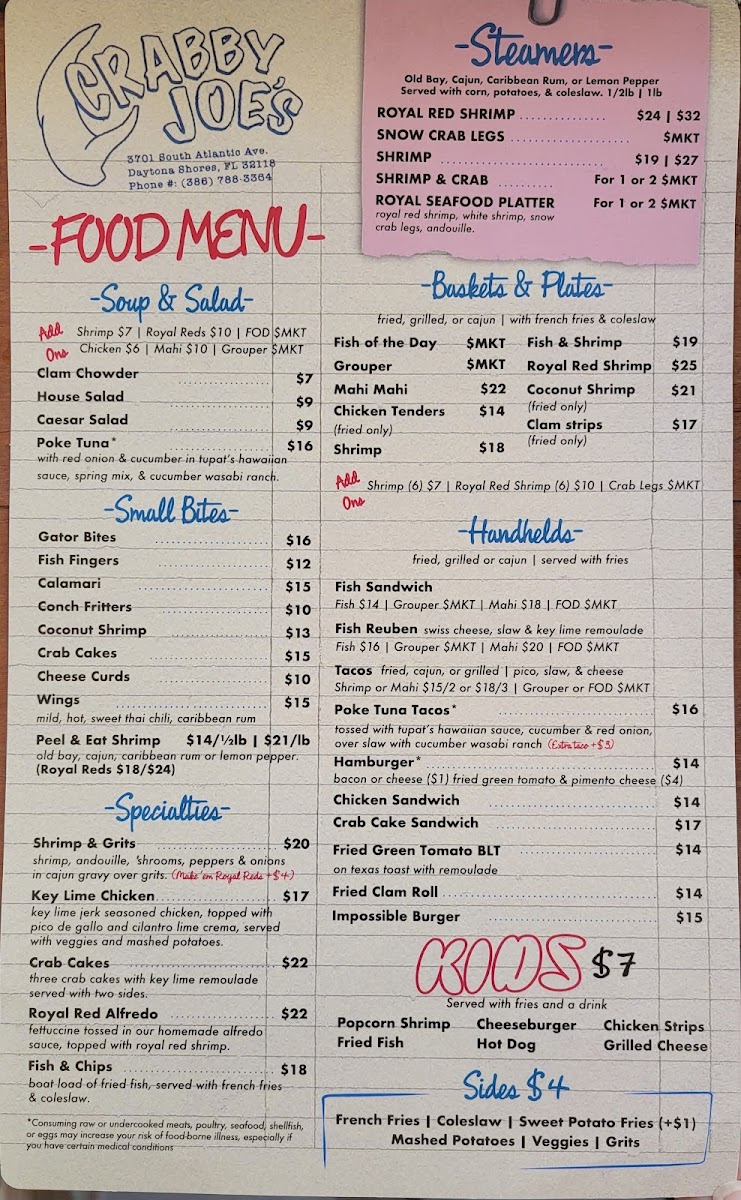 CRABBY
JOE'S
3701 South Atlantic Ave.
Daytona Shores, FL 32118
Phone #: (386) 788-3364
-FOOD MENU-
-Steamers-
Old Bay, Cajun, Caribbean Rum, or Lemon Pepper
Served with corn, potatoes, & coleslaw. 1/2lb | 1lb
ROYAL RED SHRIMP $24 | $32
SNOW CRAB LEGS $MKT
SHRIMP $19 | $27
SHRIMP & CRAB For 1 or 2 $MKT
ROYAL SEAFOOD PLATTER For 1 or 2 $MKT
royal red shrimp, white shrimp, snow
crab legs, andouille.
-Soup & Salad-
Add Ons
Shrimp $7 | Royal Reds $10 | FOD $MKT
Chicken $6 | Mahi $10 | Grouper $MKT
Clam Chowder $7
House Salad $9
Caesar Salad $9
Poke Tuna* $16
with red onion & cucumber in tupat's hawaiian
sauce, spring mix, & cucumber wasabi ranch.
-Small Bites-
Gator Bites $16
Fish Fingers $12
Calamari $15
Conch Fritters $10
Coconut Shrimp $13
Crab Cakes $15
Cheese Curds $10
Wings $15
mild, hot, sweet thai chili, caribbean rum
Peel & Eat Shrimp $14/½lb | $21/lb
old bay, cajun, caribbean rum or lemon pepper.
(Royal Reds $18/$24)
-Specialties-
Shrimp & Grits $20
shrimp, andouille, 'shrooms, peppers & onions
in cajun gravy over grits. (Make 'em Royal Reds +$4)
Key Lime Chicken $17
key lime jerk seasoned chicken, topped with
pico de gallo and cilantro lime crema, served
with veggies and mashed potatoes.
Crab Cakes $22
three crab cakes with key lime remoulade
served with two sides.
Royal Red Alfredo $22
fettuccine tossed in our homemade alfredo
sauce, topped with royal red shrimp.
Fish & Chips $18
boat load of fried fish, served with french fries
& coleslaw.
*Consuming raw or undercooked meats, poultry, seafood, shellfish,
or eggs may increase your risk of food-borne illness, especially if
you have certain medical conditions
-Baskets & Plates-
fried, grilled, or cajun | with french fries & coleslaw
Fish of the Day $MKT
Grouper $MKT
Mahi Mahi $22
Chicken Tenders $14
(fried only)
Shrimp $18
Fish & Shrimp $19
Royal Red Shrimp $25
Coconut Shrimp $21
(fried only)
Clam strips $17
(fried only)
Add Ons
Shrimp (6) $7 | Royal Red Shrimp (6) $10 | Crab Legs $MKT
-Handhelds-
fried, grilled or cajun | served with fries
Fish Sandwich
Fish $14 | Grouper $MKT | Mahi $18 | FOD $MKT
Fish Reuben swiss cheese, slaw & key lime remoulade
Fish $16 | Grouper $MKT | Mahi $20 | FOD $MKT
Tacos fried, cajun, or grilled | pico, slaw, & cheese
Shrimp or Mahi $15/2 or $18/3 | Grouper or FOD $MKT
Poke Tuna Tacos* $16
tossed with tupat's hawaiian sauce, cucumber & red onion,
over slaw with cucumber wasabi ranch (Extra taco +$3)
Hamburger* $14
bacon or cheese ($1) fried green tomato & pimento cheese ($4)
Chicken Sandwich $14
Crab Cake Sandwich $17
Fried Green Tomato BLT $14
on texas toast with remoulade
Fried Clam Roll $14
Impossible Burger $15
KIDS $7
Served with fries and a drink
Popcorn Shrimp Cheeseburger Chicken Strips
Fried Fish Hot Dog Grilled Cheese
Sides $4
French Fries | Coleslaw | Sweet Potato Fries (+$1)
Mashed Potatoes | Veggies | Grits